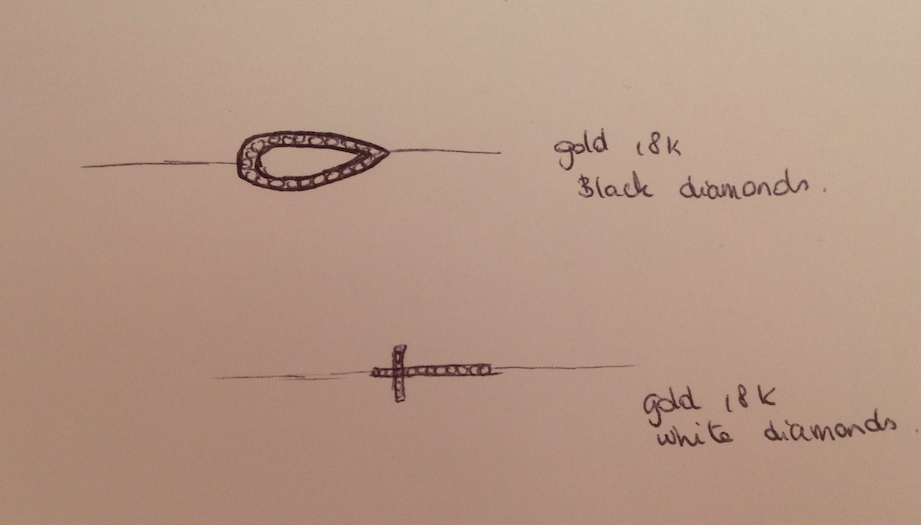 gold 18K
Black diamonds.
gold 18K
white diamonds.